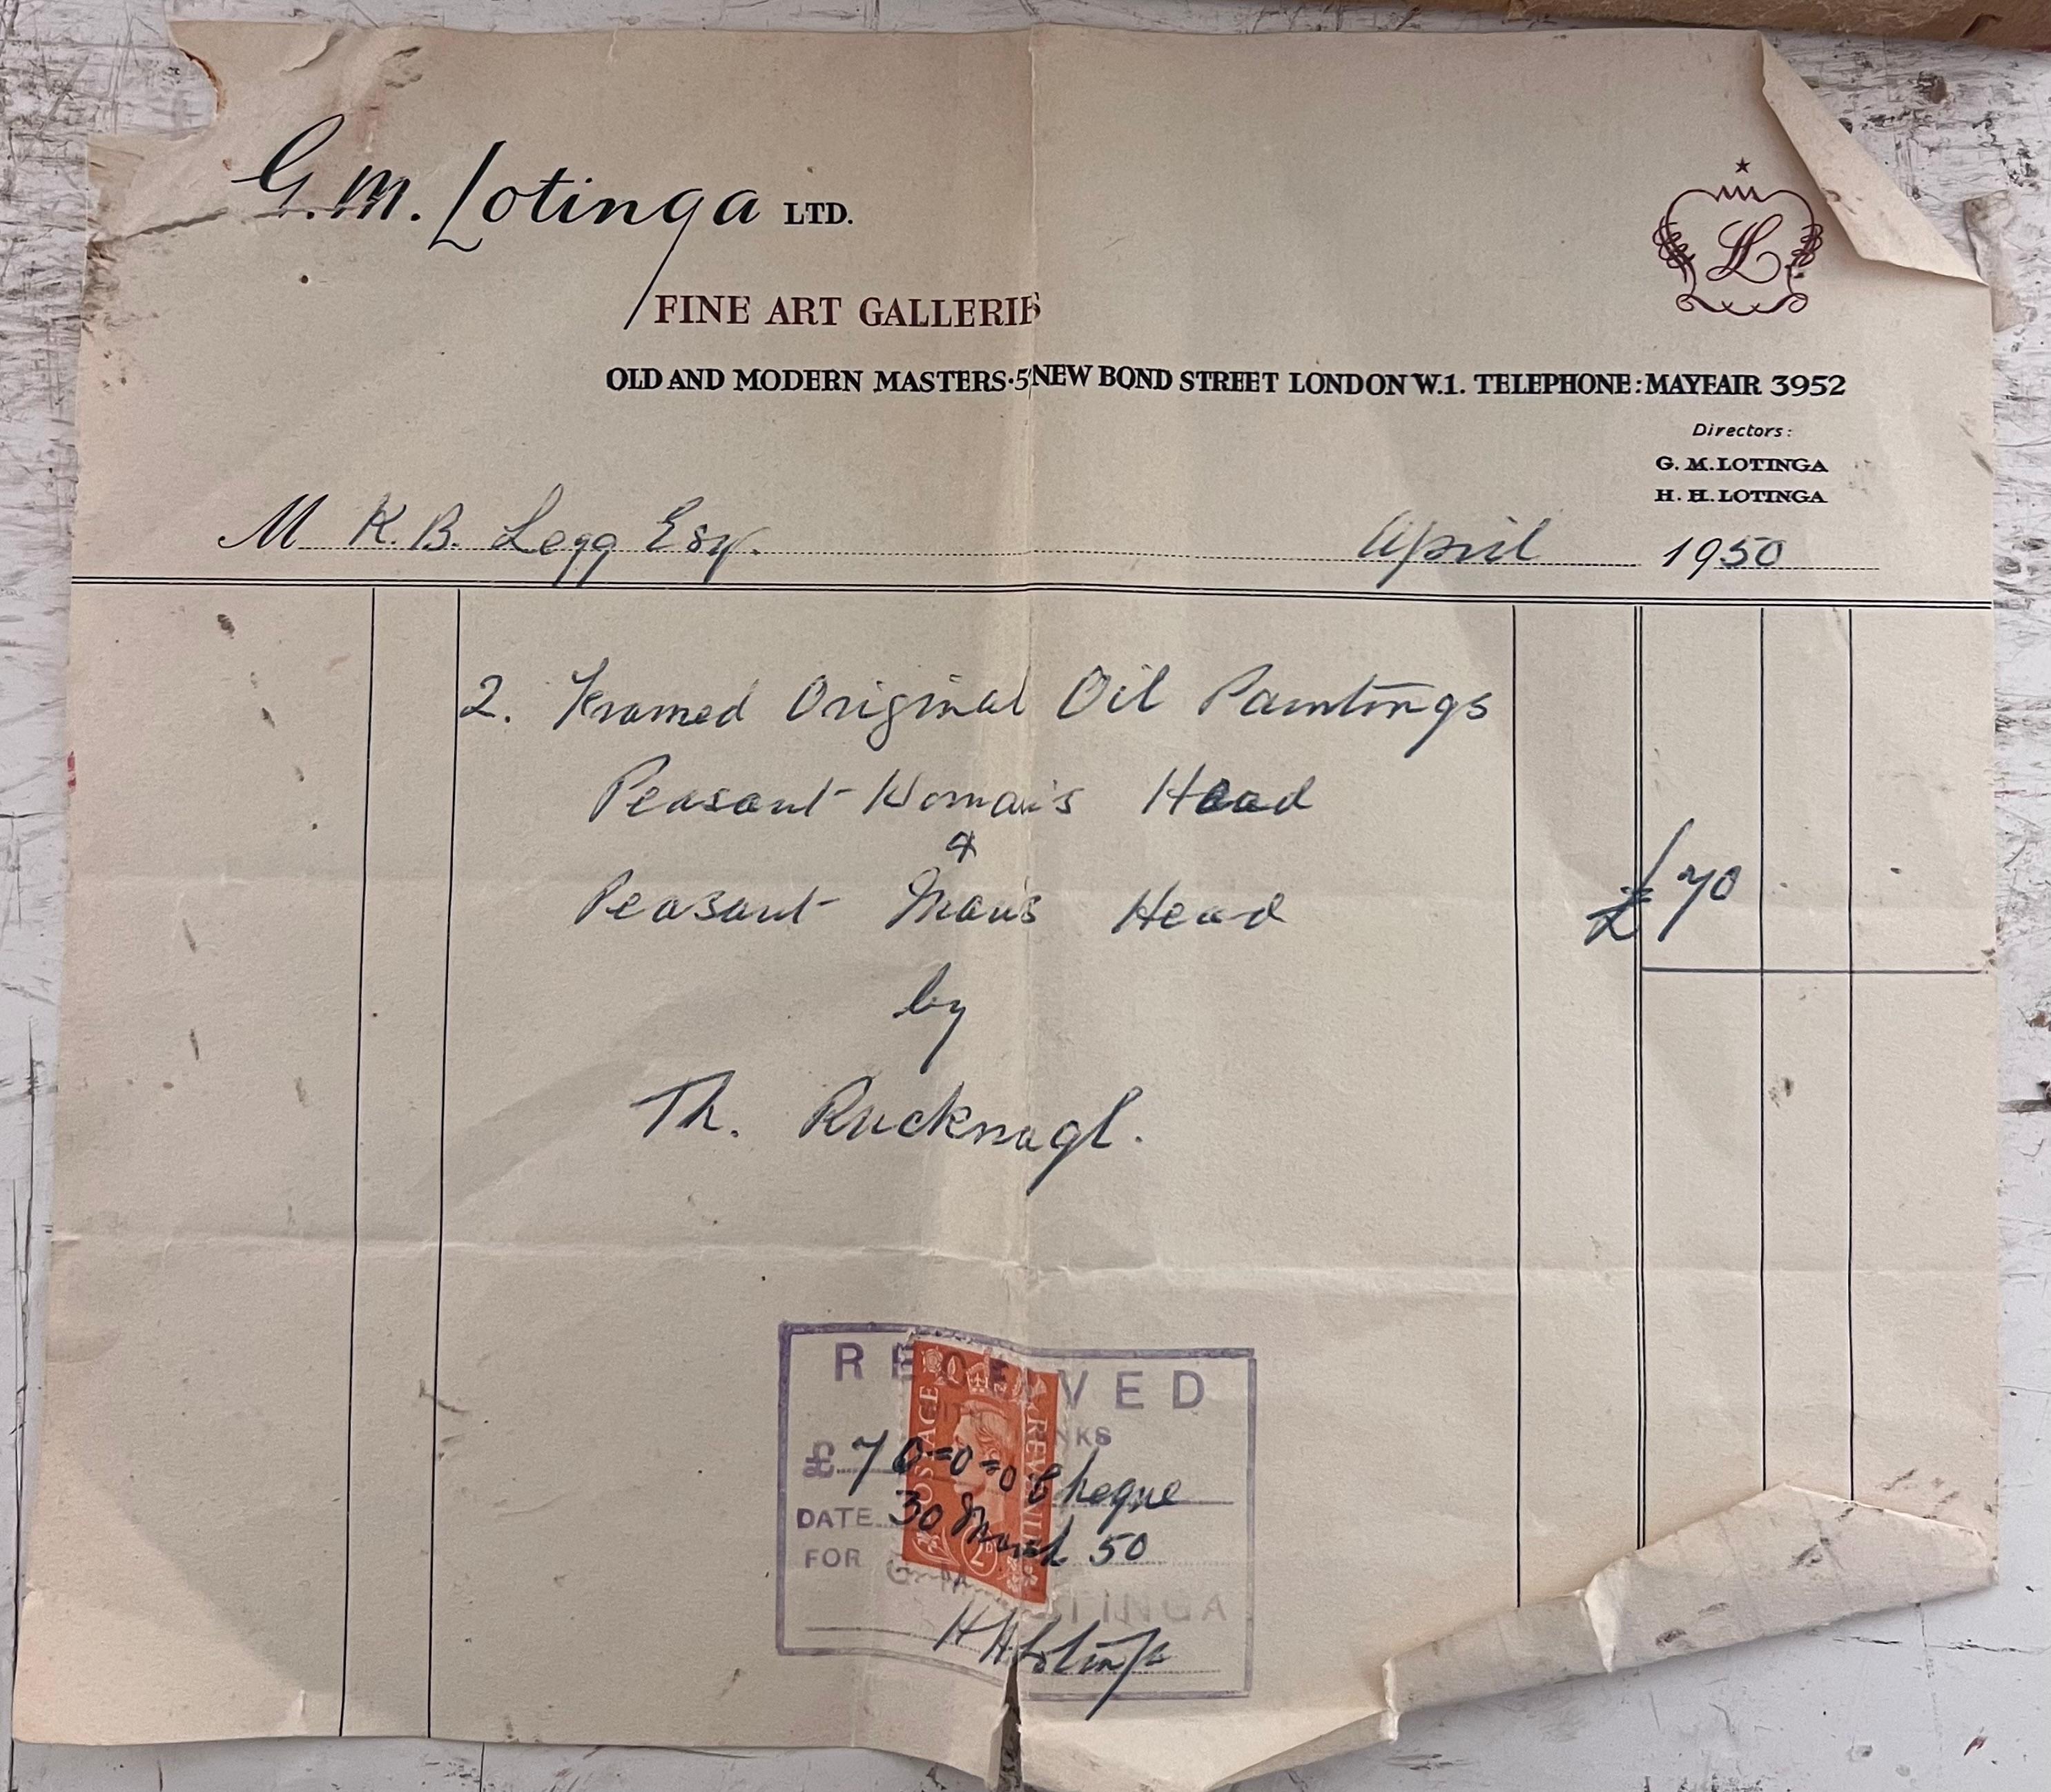 G. M. Lotinga LTD.
FINE ART GALLERIES
OLD AND MODERN MASTERS · 5 NEW BOND STREET LONDON W.1. TELEPHONE: MAYFAIR 3952
L
Directors:
G. M. LOTINGA
H. H. LOTINGA
M K. B. Legg Esq. April 1950
2. Framed Original Oil Paintings
Peasant Woman's Head
&
Peasant Man's Head £70
by
Th. Rucknagl.
RECEIVED
POSTAGE REVENUE
£ 70=0=0 Cheque
DATE 30 March 50
2D
FOR
H H Lotinga